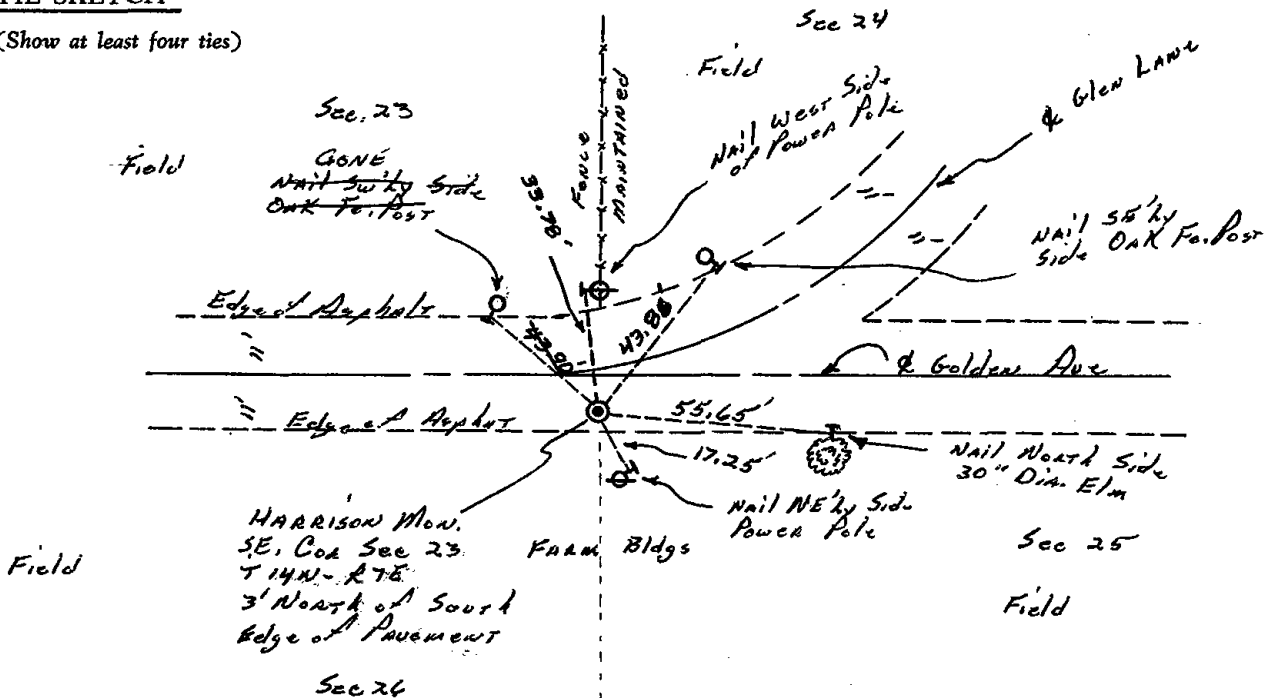 TIE SKETCH
(Show at least four ties)
Sec 24
Field
Sec. 23
Field
GONE
Nail Sw'ly Side
OAK Fe. Post
Fence
MAINTAINED
33.78'
Nail West Side
of Power Pole
℄ Glen Lane
Nail SE'ly
Side OAK Fe. Post
Edge of Asphalt
43.90'
43.86
"
"
℄ Golden Ave
Edge of Asphalt
55.65'
17.25'
Nail North Side
30" Dia. Elm
Nail NE'ly Side
Power Pole
HARRISON MON.
S.E. Cor Sec 23
T 14N - R7E
3' North of South
Edge of Pavement
FARM Bldgs
Sec 25
Field
Field
Sec 26